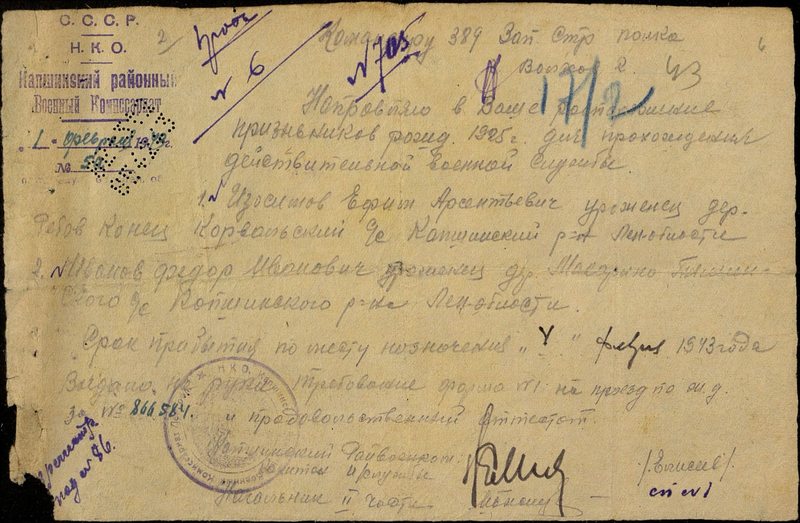 С. С. С. Р.
Н. К. О.
Капшинский районный
Военный Комиссариат
"1" февраля 1943 г.
№ 52
2
№ 6
№ 705
17/2
43
6
Командиру 389 Зап Стр полка
Волхов 2.
Направляю в Ваше распоряжение
призывников рожд. 1925 г. для прохождения
действительной военной службы.
1. Изосимов Ефим Арсентьевич уроженец дер.
Ребов Конец Корвальский с/с Капшинский р-н Ленобласти
2. Иванов Федор Иванович уроженец д.
ского с/с Капшинского р-на Ленобласти.
Срок прибытия по месту назначения "4" февраля 1943 года
Выдано на руки требование форма №1 на проезд по ж.д.
За № 866584. и продовольственный аттестат.
Капшинский Райвоенком
Капитан И/службы
/Елисеев/
Начальник II части